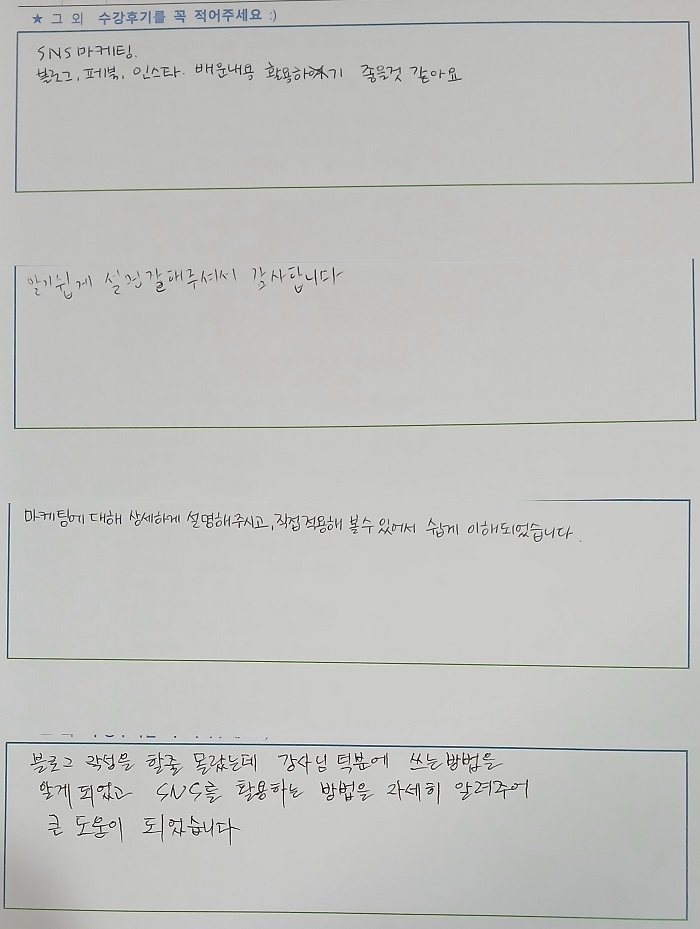 ★ 그 외 수강후기를 꼭 적어주세요 :)
SNS 마케팅.
블로그, 페북, 인스타. 배운내용 활용하기 좋을것 같아요
알기쉽게 설명잘해주셔서 감사합니다
마케팅에 대해 상세하게 설명해주시고, 직접적용해 볼 수 있어서 쉽게 이해되었습니다.
블로그 작성을 할줄 몰랐는데 강사님 덕분에 쓰는방법을
알게 되었고 SNS를 활용하는 방법을 자세히 알려주어
큰 도움이 되었습니다